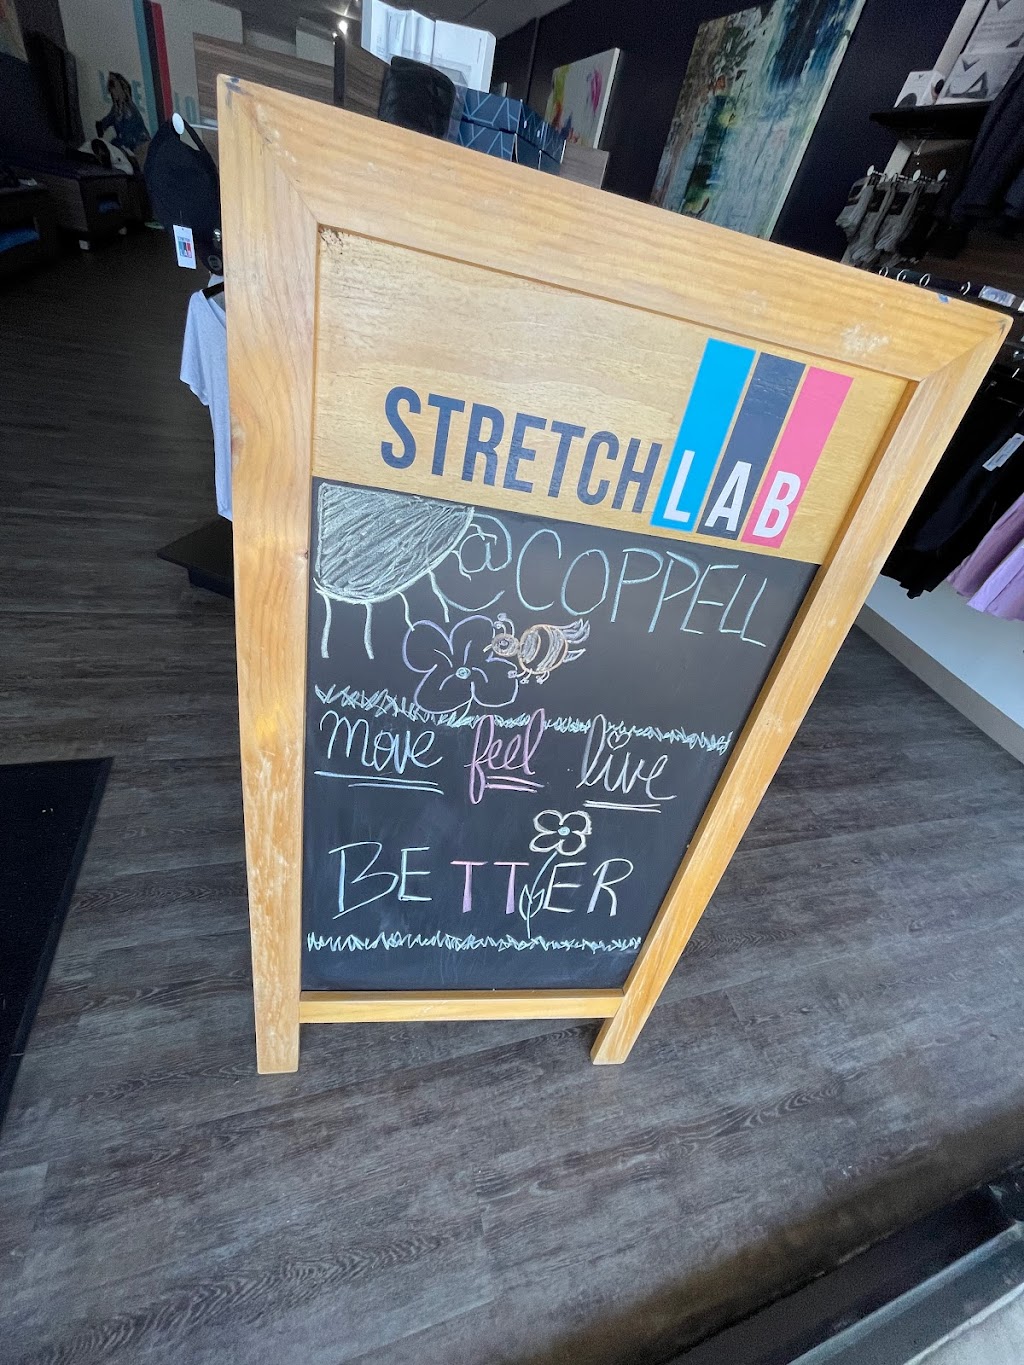 STRETCH LAB
@COPPELL
move feel live
BETTER